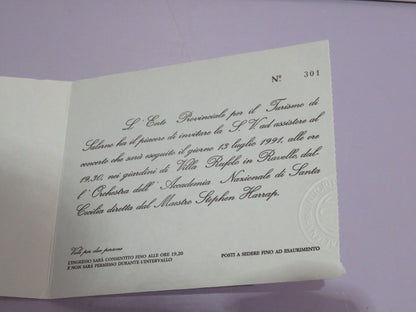 Nº 301
L'Ente Provinciale per il Turismo di
Salerno ha il piacere di invitare la S. V. ad assistere al
concerto che sarà eseguito il giorno 13 luglio 1991, alle ore
19.30, nei giardini di Villa Rufolo in Ravello, dal-
l'Orchestra dell'Accademia Nazionale di Santa
Cecilia diretta dal Maestro Stephen Harrap.
Vale per due persone
L'INGRESSO SARÀ CONSENTITO FINO ALLE ORE 19,20
E NON SARÀ PERMESSO DURANTE L'INTERVALLO
POSTI A SEDERE FINO AD ESAURIMENTO